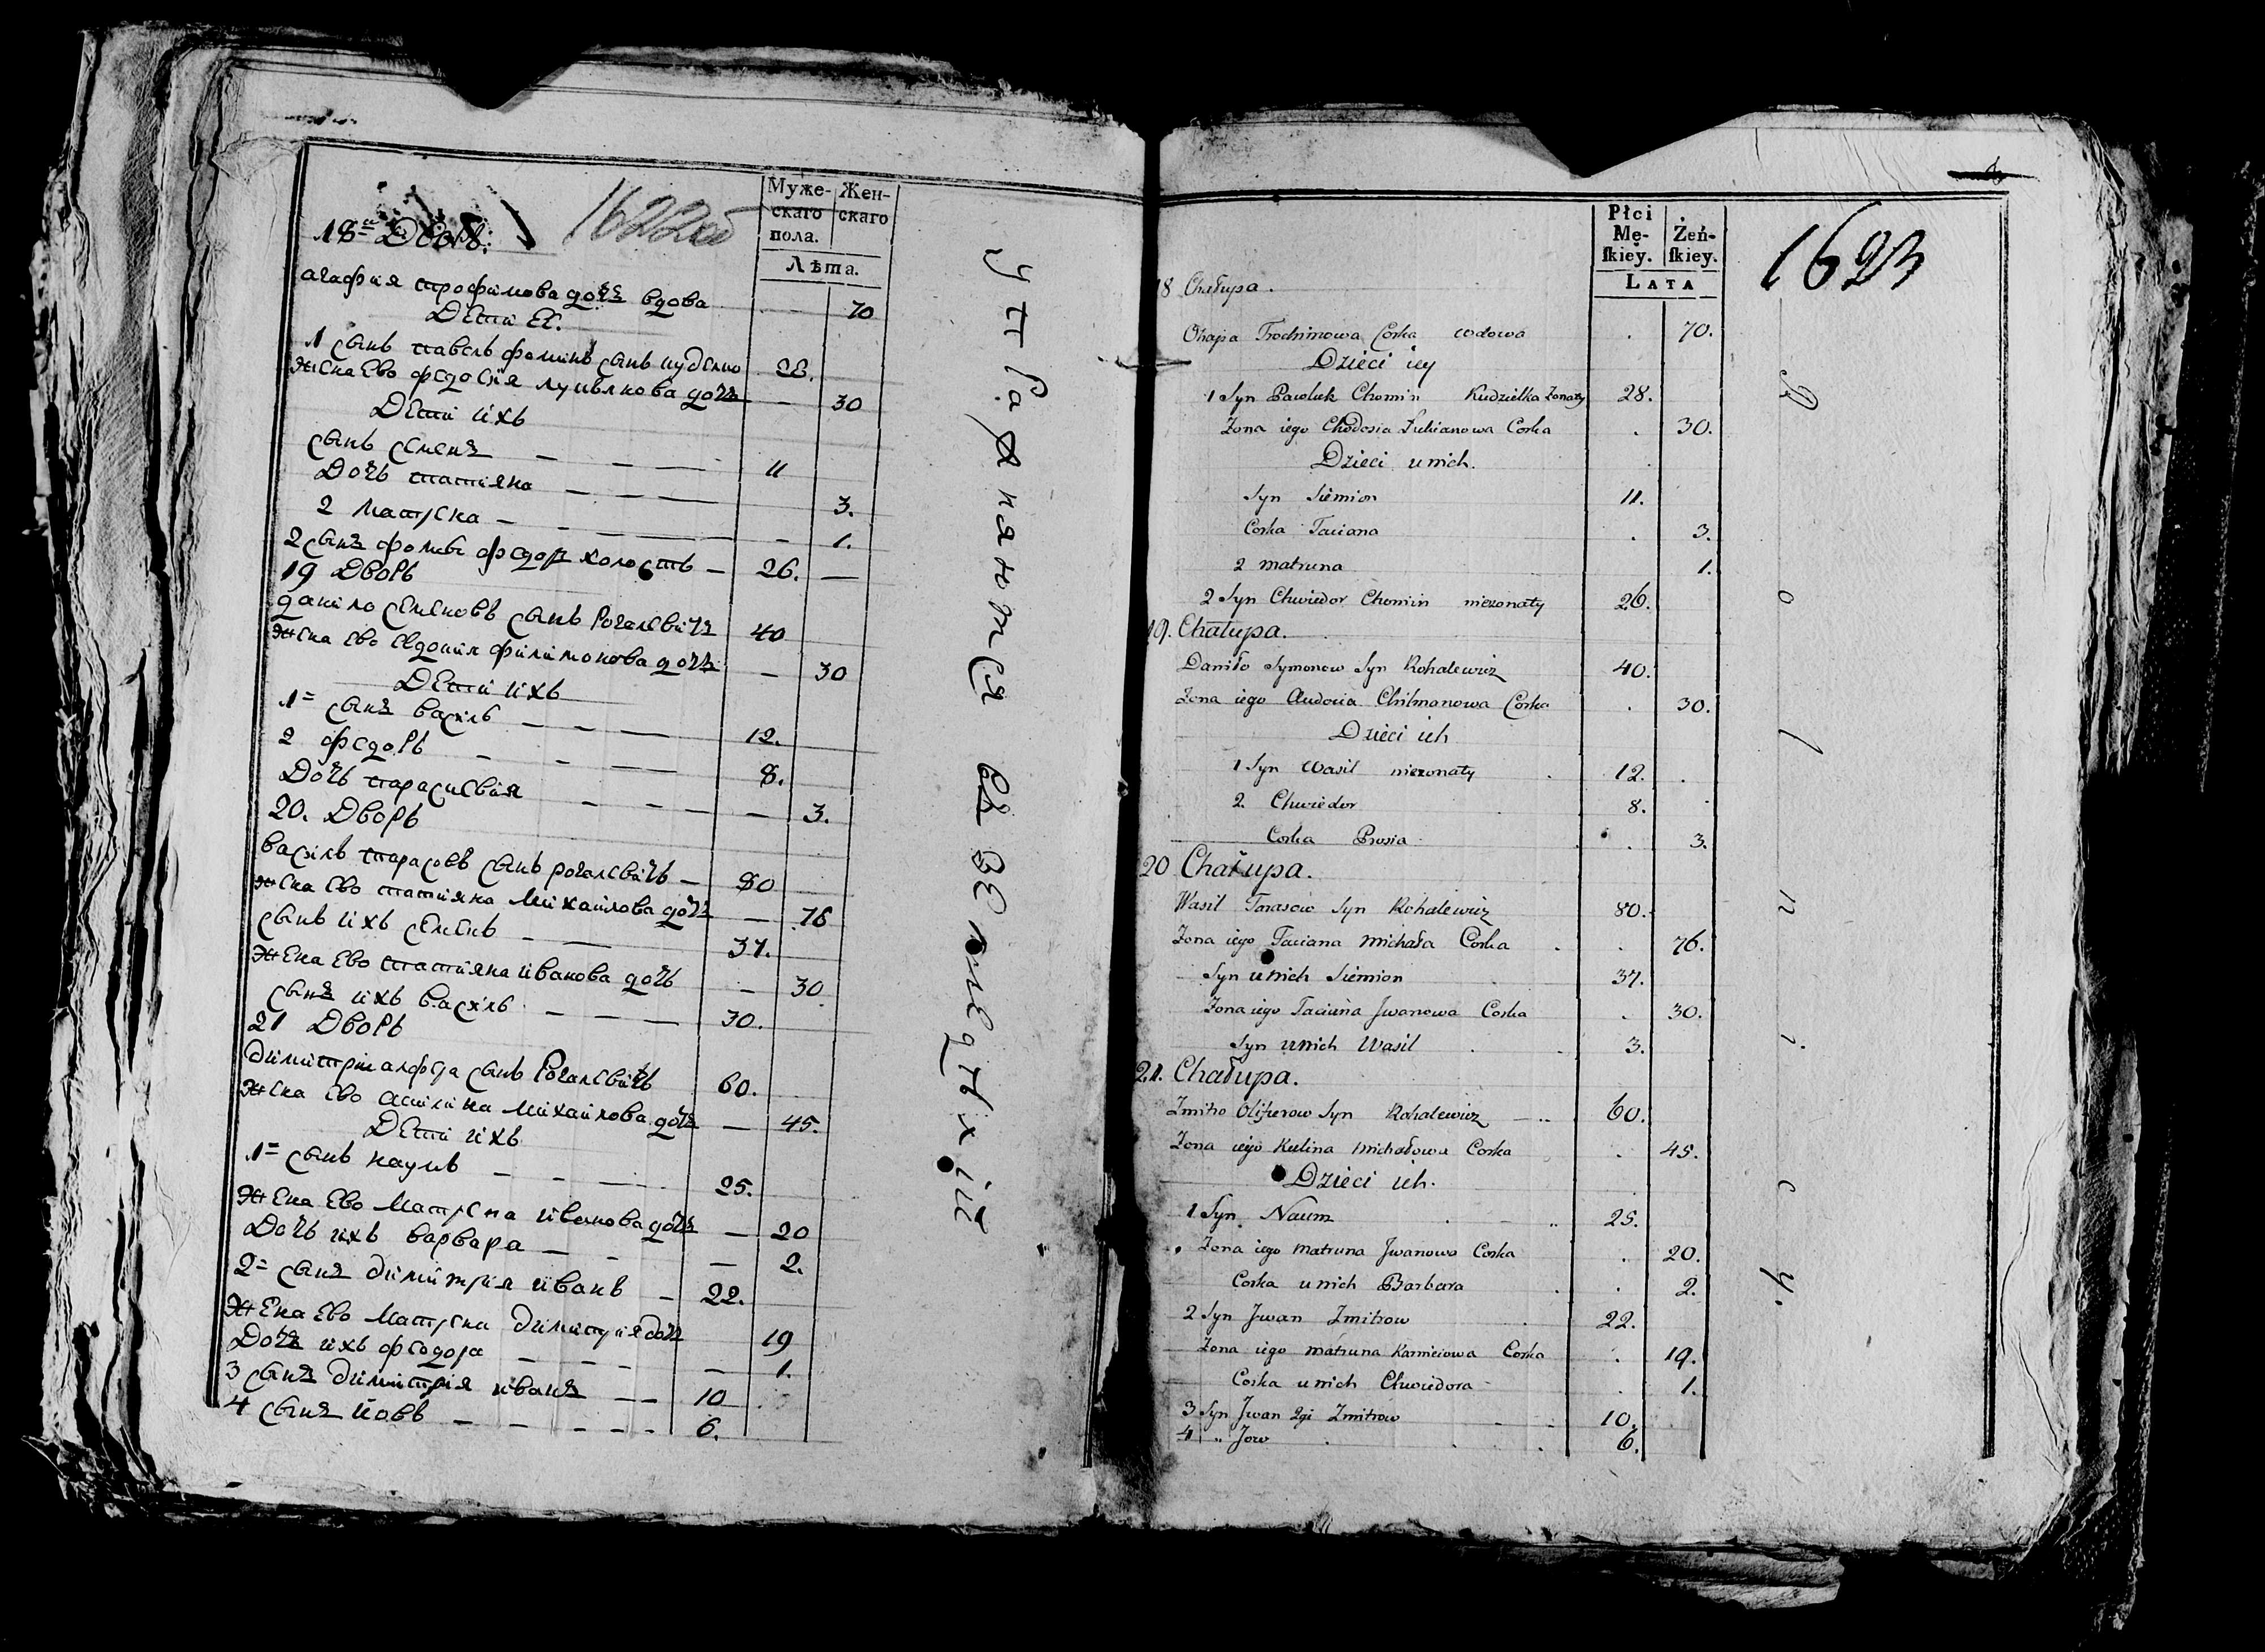 1622об
Муже-
скаго
пола.
Жен-
скаго
Лѣта.
18 Дворъ.
агафия трофимова дочь вдова 70
Дети Ее.
1 сынъ павелъ фоминъ сынъ кудѣлко 28.
жена Ево федосия лукьянова дочь 30
Дети ихъ
сынъ семенъ 11
Дочь татияна 3.
2 матрена 1.
2 сынъ фоминъ федоръ холостъ 26.
19 Дворъ
данило семеновъ сынъ Рогалевичъ 40
жена ево авдотия филимонова дочь 30
Дети ихъ
1 сынъ василь 12.
2 федоръ 8.
Дочь парасковия 3.
20. Дворъ
василь тарасовъ сынъ рогалевичъ 80
жена ево татияна михаилова дочь 76
сынъ ихъ семенъ 37.
жена Ево татияна иванова дочь 30
сынъ ихъ василь 30.
21 Дворъ
димитри сынъ Рогалевичъ 60.
жена ево михаилова дочь 45.
Дети ихъ
1 сынъ наумъ 25.
жена Ево матрена иванова дочь 20
Дочь ихъ варвара 2.
2 сынъ димитрия иванъ 22.
жена Ево матрена дочь 19
Дочь ихъ федора 1.
3 сынъ димитрия иванъ 10
4 сынъ иовъ 6.
упражняются въ земледѣліи
1623
Płci
Mę-
ſkiey.
Żeń-
ſkiey.
Lata
18 Chałupa.
Ohapa Trochimowa Corka wdowa 70.
Dzieci iey
1 Syn Pawluk Chomin Kudzielka Zonaty 28.
Zona iego Chodosia Łukianowa Corka 30.
Dzieci u nich.
Syn Siemion 11.
Corka Taciana 3.
2 matruna 1.
2 Syn Chwiedor Chomin niezonaty 26.
19. Chałupa.
Daniło Symonow Syn Rohalewicz 40.
Zona iego Audocia Chilmonowa Corka 30.
Dzieci ich
1 Syn Wasil niezonaty 12.
2. Chwiedor 8.
Corka Prosia 3.
20 Chałupa.
Wasil Tarasow Syn Rohalewicz 80.
Zona iego Taciana Michała Corka 76.
Syn u nich Siemion 37.
Zona iego Taciana Jwanowa Corka 30.
Syn u nich Wasil 3.
21. Chałupa.
Zmitro Oliferow Syn Rohalewicz 60.
Zona iego Kulina Michałowa Corka 45.
Dzieci ich.
1 Syn Naum 25.
Zona iego Matruna Jwanowa Corka 20.
Corka u nich Barbara 2.
2 Syn Jwan Zmitrow 22.
Zona iego Matruna Corka 19.
Corka u nich Chwiedora 1.
3 Syn Jwan 2gi Zmitrow 10.
4 " Jow 6.
Rolnicy.